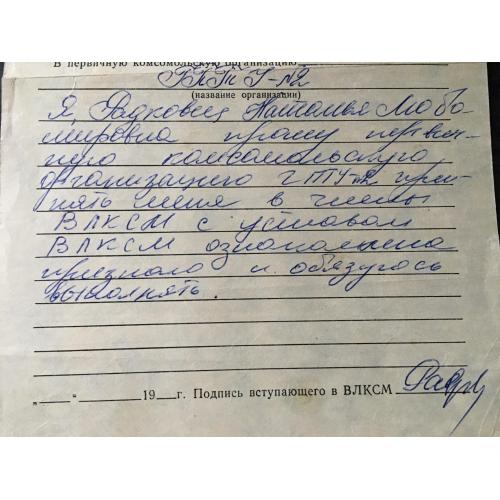 В первичную комсомольскую организацию
ГПТУ-№2
(название организации)
Я, Радковец Наталья Любо-
мировна прошу первич-
ную комсомольскую
организацию ГПТУ №2 при-
нять меня в члены
ВЛКСМ с уставом
ВЛКСМ ознакомлена
признаю и обязуюсь
выполнять.
„ “ 19 г. Подпись вступающего в ВЛКСМ